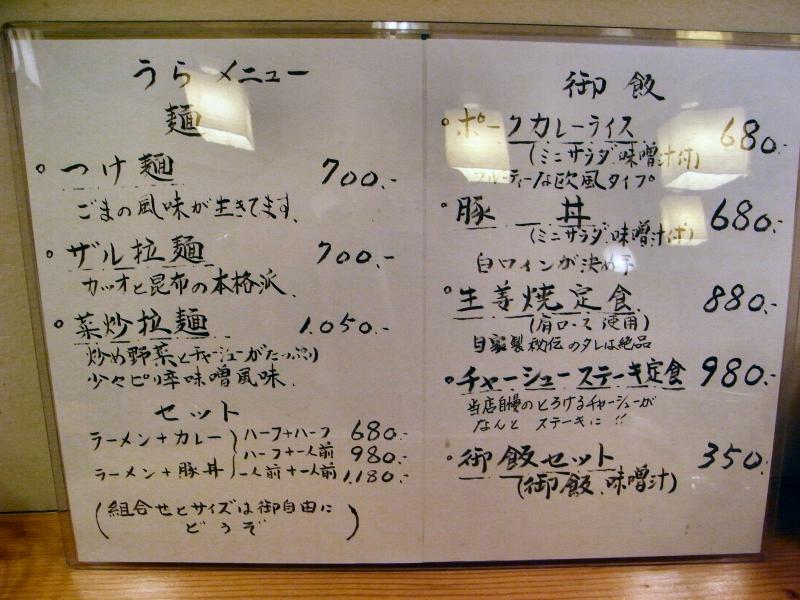 うらメニュー
麺
つけ麺 700.-
ごまの風味が生きてます、
ザル拉麺 700.-
カツオと昆布の本格派、
菜炒拉麺 1.050.-
炒め野菜とチャーシューがたっぷり
少々ピリ辛味噌風味、
セット
ラーメン+カレー
ラーメン+豚丼
ハーフ+ハーフ 680.-
ハーフ+一人前 980.-
一人前+一人前 1.180.-
(組合せとサイズは御自由に
どうぞ)
御飯
ポークカレーライス 680.-
(ミニサラダ、味噌汁付)
フルーティーな欧風タイプ
豚丼 680.-
(ミニサラダ、味噌汁付)
白ワインが決め手
生姜焼定食 880.-
(肩ロース使用)
自家製秘伝のタレは絶品
チャーシューステーキ定食 980.-
当店自慢のとろけるチャーシューが
なんと ステーキに!!
御飯セット 350.-
(御飯、味噌汁)